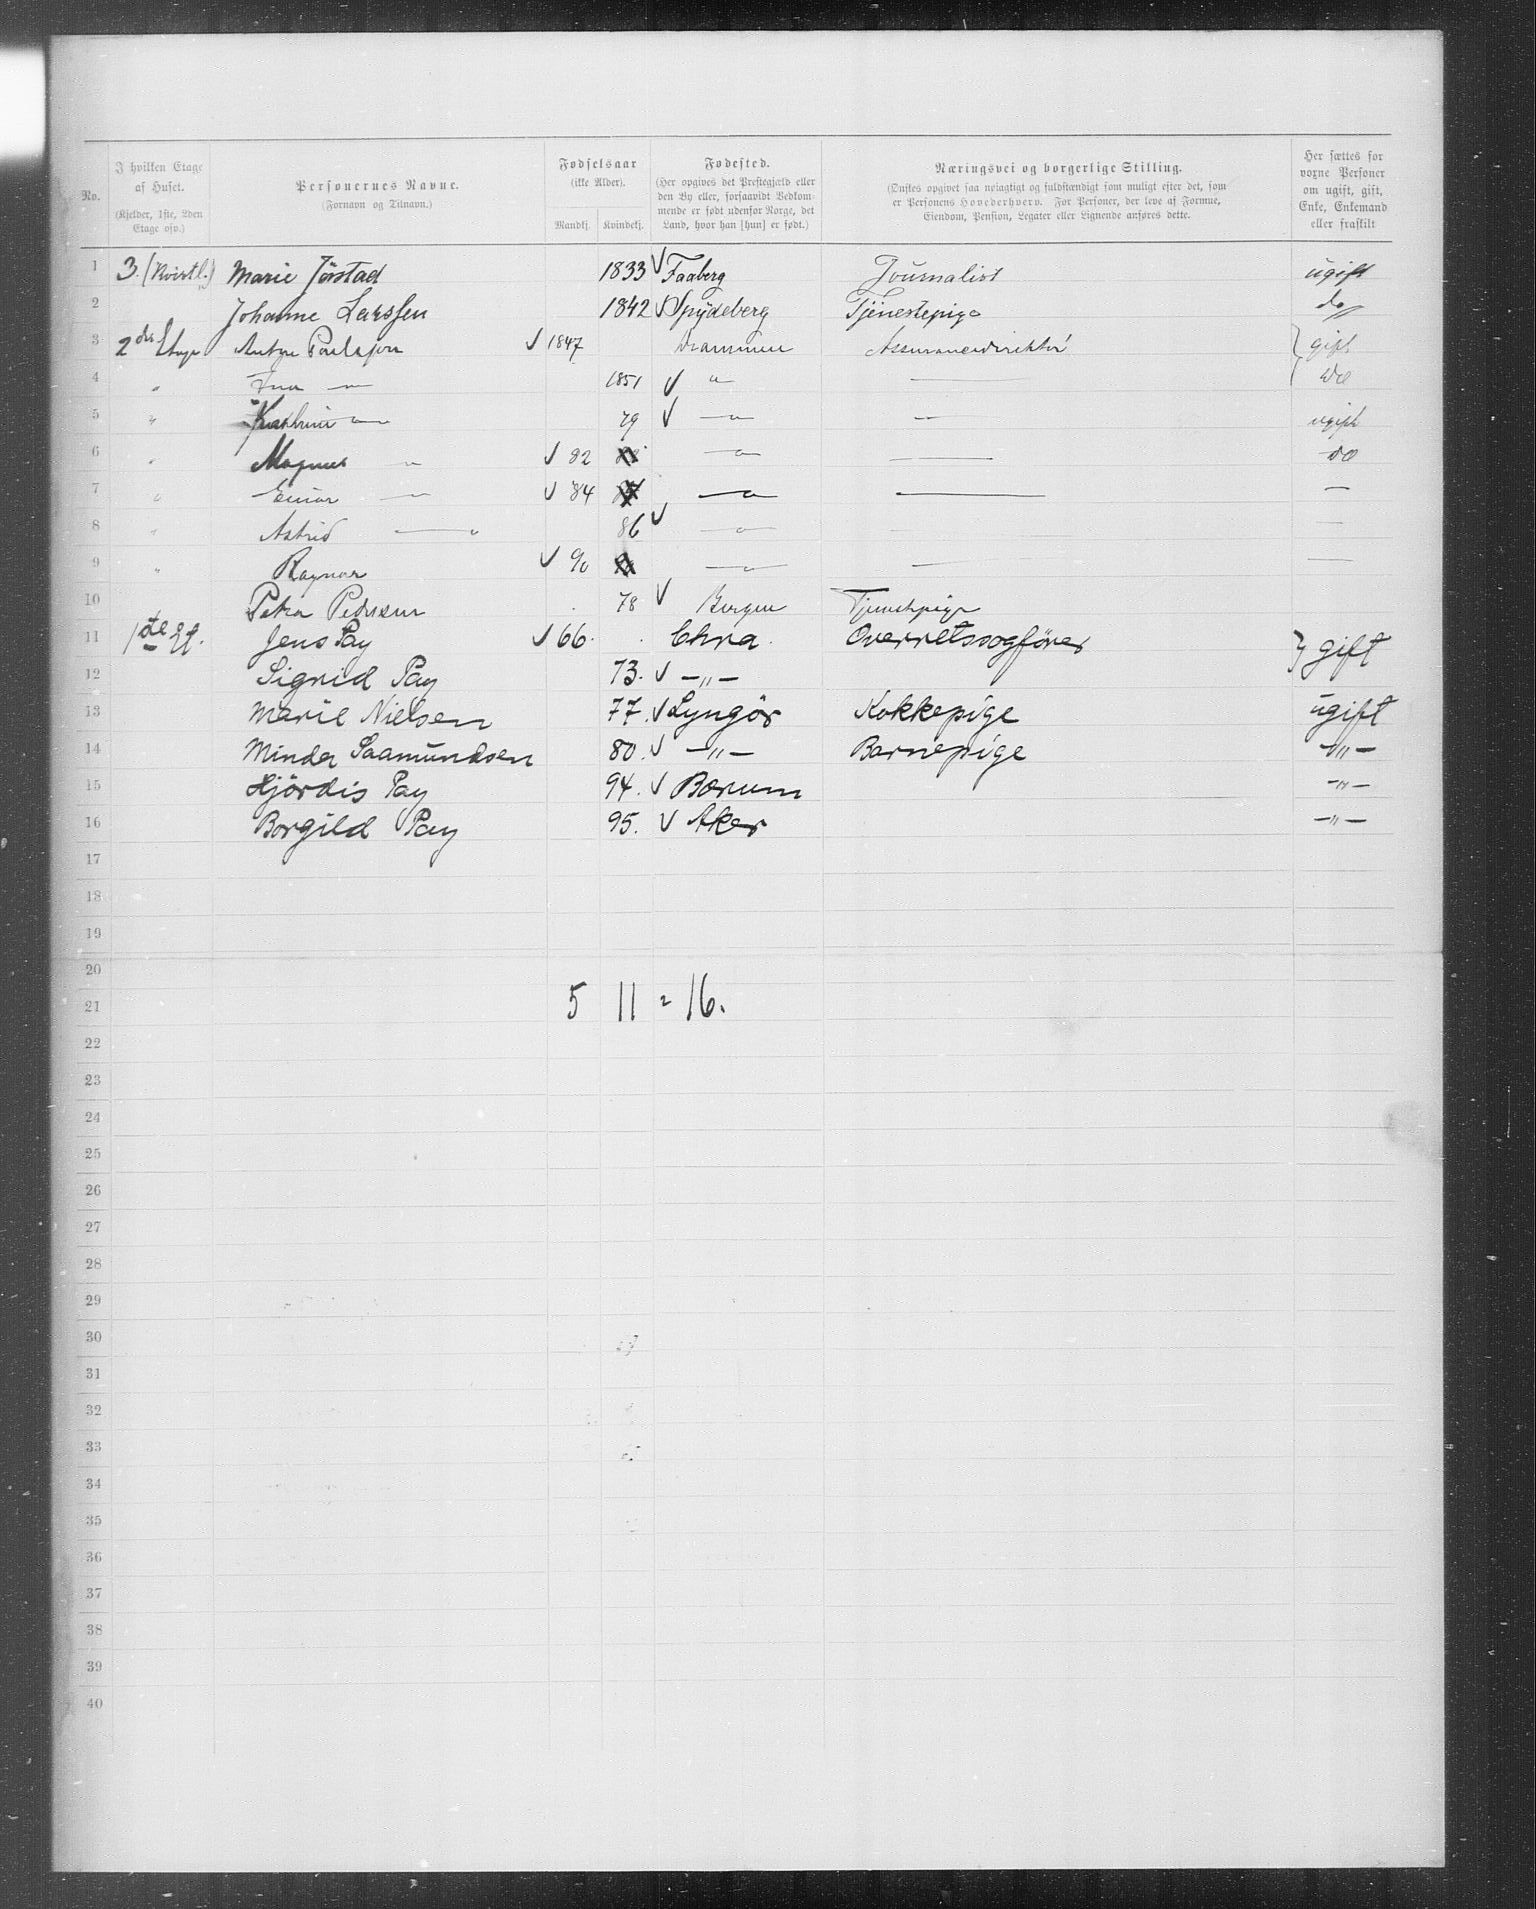 No.
I hvilken Etage af Huset.
(Kjelder, 1ste, 2den Etage osv.)
Personernes Navne.
(Fornavn og Tilnavn.)
Fødselsaar
(ikke Alder).
Mandkj. Kvindekj.
Fødested.
(Her opgives det Præstegjæld eller
den By eller, forsaavidt Vedkom-
mende er født udenfor Norge, det
Land, hvor han [hun] er født.)
Næringsvei og borgerlige Stilling.
(Ønskes opgivet saa nøiagtigt og fuldstændigt som muligt efter det, som
er Personens Hovederhverv. For Personer, der leve af Formue,
Eiendom, Pension, Legater eller Lignende anføres dette.
Her sættes for
voxne Personer
om ugift, gift,
Enke, Enkemand
eller fraskilt
1 3. (Kvistl.) Marie Jörstad 1833 Faaberg Journalist ugift
2 Johanne Larssen 1842 Spydeberg Tjenestepige do
3 2den Etage 1847 Drammen Assurancedirektör gift
4 " — " — 1851 " — do
5 " Kathrine — " — 79 — " — — ugift
6 " Magnus — " 82 — " — — do
7 " Einar — " — 84 — " — — —
8 " Astrid — " 86 — " — — —
9 " Ragnar 90 — " — — —
10 Petra Pedersen 78 Bergen Tjenestepige
11 1ste Et. Jens Pay 66. Chra. Overretssagförer } gift
12 Sigrid Pay 73. — " —
13 Marie Nielsen 77. Lyngör Kokkepige ugift
14 Minda Saamundsen 80. — " — Barnepige — " —
15 Hjördis Pay 94. Bærum — " —
16 Borgild Pay 95. Aker — " —
17
18
19
20
21 5 11 = 16.
22
23
24
25
26
27
28
29
30
31
32
33
34
35
36
37
38
39
40